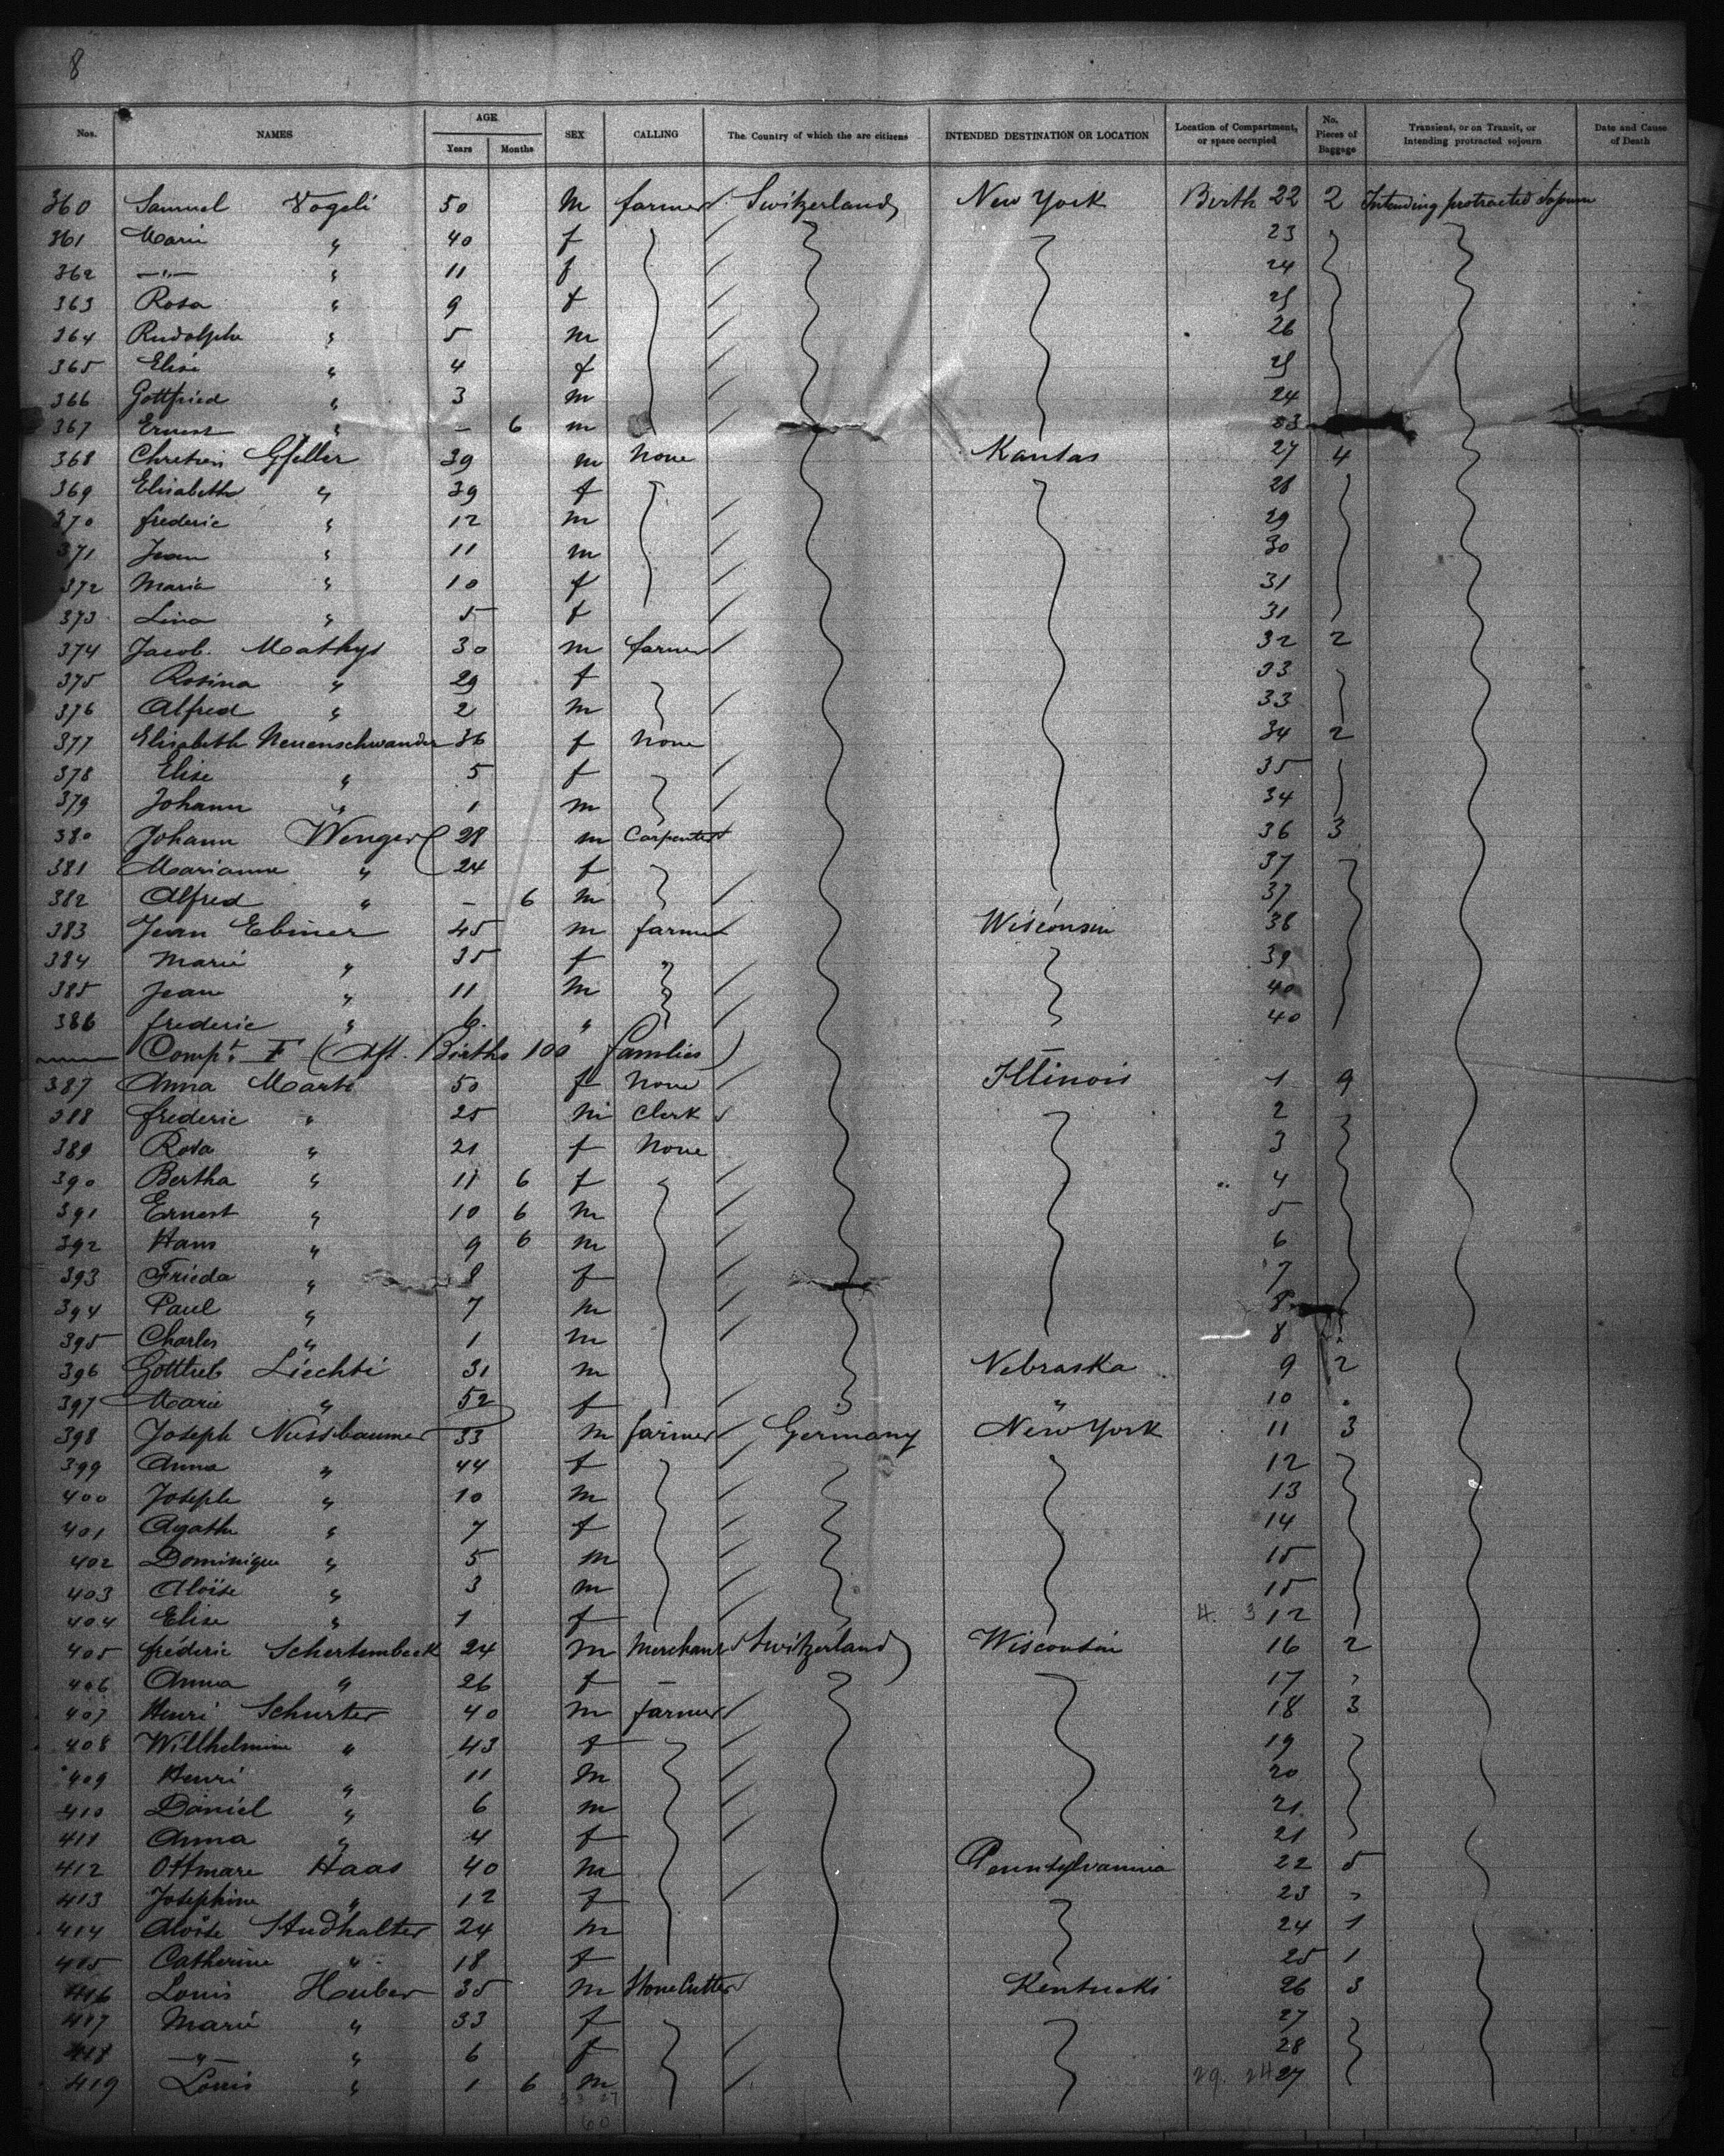 8
Nos. NAMES AGE Years Months SEX CALLING The Country of which the are citizens INTENDED DESTINATION OR LOCATION Location of Compartment, or space occupied No. Pieces of Baggage Transient, or on Transit, or Intending protracted sojourn Date and Cause of Death
360 Samuel Vogeli 50 m farmer Switzerland New York Birth 22 2 Intending protracted Sojourn
361 Marie " 40 f 23
362 —"— " 11 f 24
363 Rosa " 9 f 25
364 Rudolphe " 5 m 26
365 Elise " 4 f 25
366 Gottfried " 3 m 24
367 Ernest " – 6 m 23
368 Chretien Gfeller 39 m none Kansas 27 4
369 Elisabeth " 39 f 28
370 frederic " 12 m 29
371 Jean " 11 m 30
372 Maria " 10 f 31
373 Lina " 5 f 31
374 Jacob. Mathys 30 m farmer 32 2
375 Rosina " 29 f 33
376 Alfred " 2 m 33
377 Elisabeth Neuenschwander 36 f none 34 2
378 Elise " 5 f 35
379 Johann " 1 m 34
380 Johann Wenger 28 m Carpenter 36 3
381 Marianne " 24 f 37
382 Alfred " – 6 m 37
383 Jean Ebiner 45 m farmer Wisconsin 38
384 Marie " 35 f " 39
385 Jean " 11 m 40
386 frederic " 6. " 40
Compt. F (Aft. Births 100 families)
387 Anna Marti 50 f none Illinois 1 9
388 frederic " 25 m Clerk 2
389 Rosa " 21 f none 3
390 Bertha " 11 6 f 4
391 Ernest " 10 6 m 5
392 Hans " 9 6 m 6
393 Frieda " 8 f 7
394 Paul " 7 m 8
395 Charles " 1 m 8
396 Gottlieb Liechti 31 m Nebraska 9 2
397 Marie " 52 f " 10
398 Joseph Nussbaumer 33 m farmer Germany New York 11 3
399 Anna " 44 f 12
400 Joseph " 10 m 13
401 Agathe " 7 f 14
402 Dominique " 5 m 15
403 Aloïse " 3 m 15
404 Elise " 1 f 12
405 frederic Schertembeck 24 m Merchant Switzerland Wisconsin 16 2
406 Anna " 26 f – 17 "
407 Henri Schurter 40 m farmer 18 3
408 Willhelmine " 43 f 19
409 Henri " 11 m 20
410 Daniel " 6 m 21
411 Anna " 4 f 21
412 Ottmare Haas 40 m Pennsylvannia 22 5
413 Josephine " 12 f 23 "
414 Aloïse Studhalter 24 m 24 1
415 Catherine " 18 f 25 1
416 Louis Huber 35 m Stone Cutter Kentucki 26 3
417 Marie " 33 f 27
418 —"— " 6 f 28
419 Louis " 1 6 m 29. 24 27
60